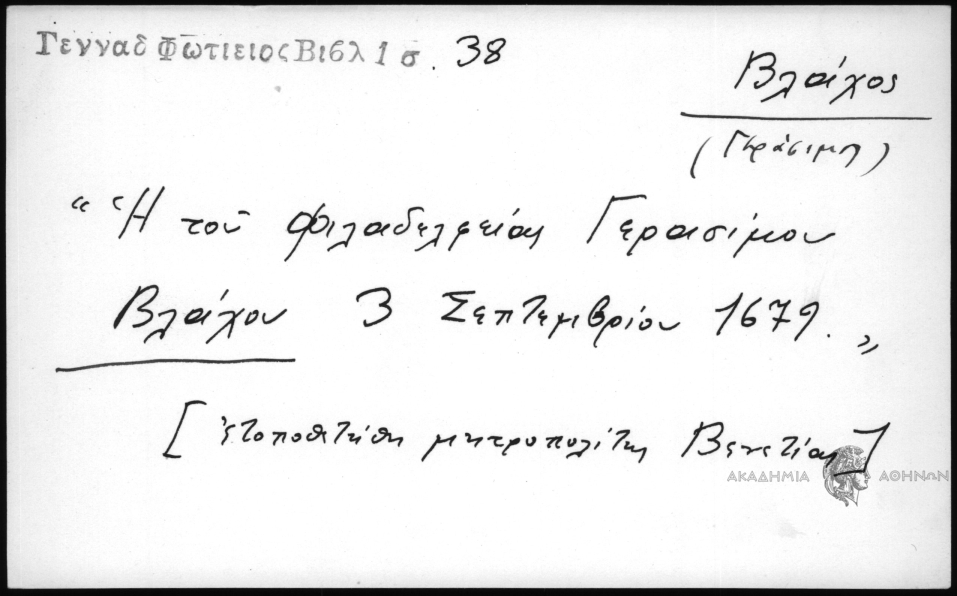 Γενναδ Φωτιειος Βιβλ 1 σ. 38
Βλάχος
(Γεράσιμος)
“ Ἡ τοῦ Φιλαδελφείας Γερασίμου
Βλάχου 3 Σεπτεμβρίου 1679. „
[ ἐτοποθετήθη μητροπολίτης Βενετίας ]
ΑΚΑΔΗΜΙΑ ΑΘΗΝΩΝ